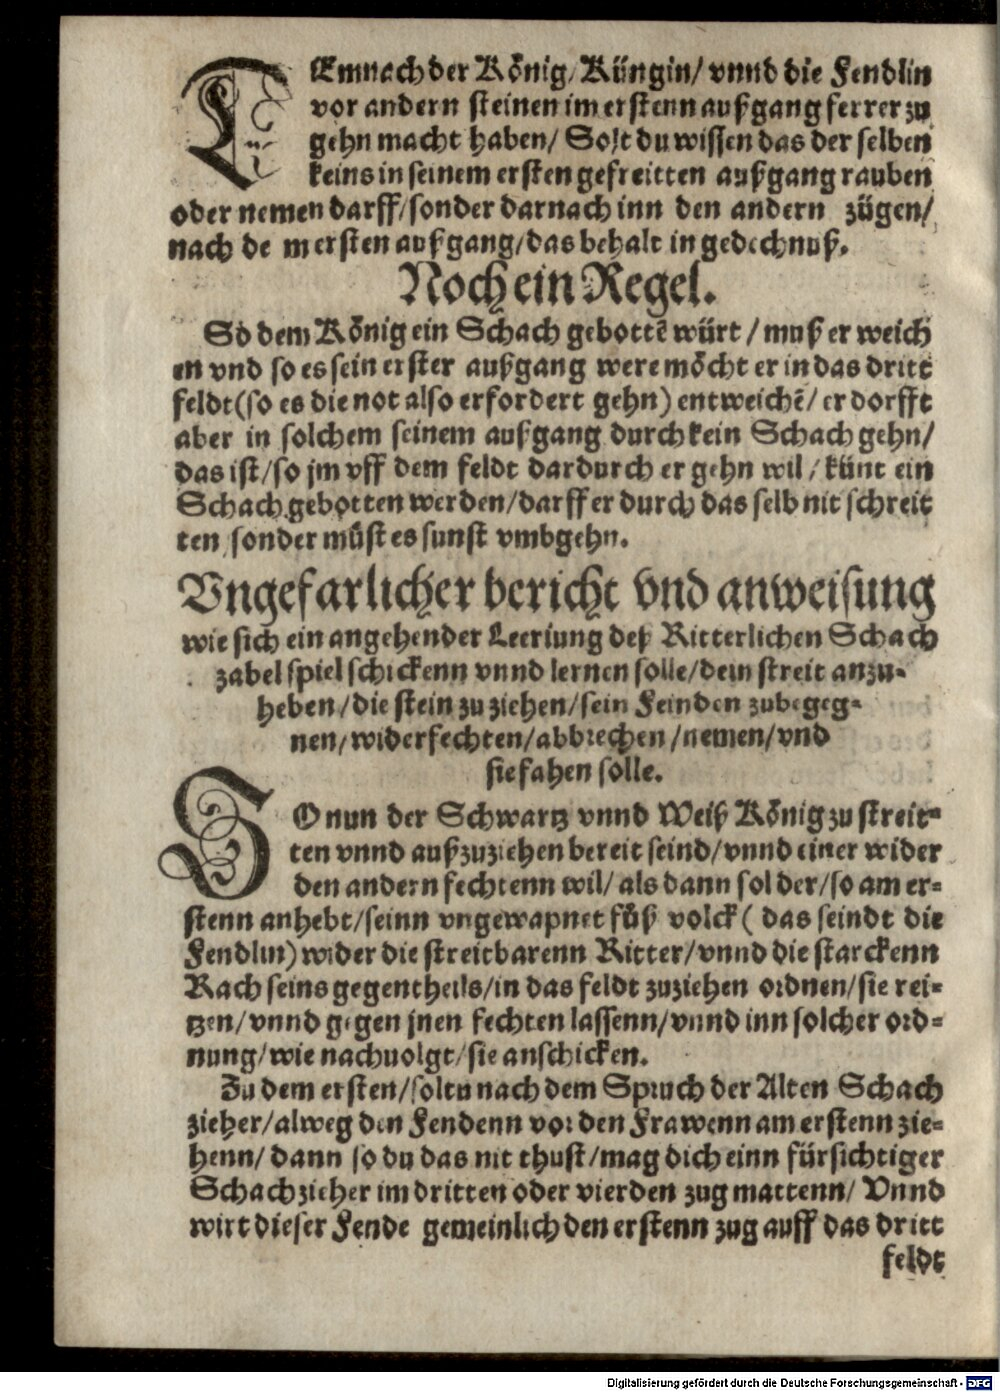 DEmnach der König/ Küngin/ vnnd die Fendlin
vor andern steinen im erstenn außgang ferrer zu
gehn macht haben/ Solt du wissen das der selben
keins in seinem ersten gefreitten außgang rauben
oder nemen darff/ sonder darnach inn den andern zügen/
nach de m ersten außgang/ das behalt in gedechnuß.
Noch ein Regel.
So dem König ein Schach gebottē würt / muß er weich
en vnd so es sein erster außgang were möcht er in das dritt
feldt (so es die not also erfordert gehn) entweichē/ er dorfft
aber in solchem seinem außgang durch kein Schach gehn/
das ist/ so jm vff dem feldt dardurch er gehn wil/ künt ein
Schach gebotten werden/ darff er durch das selb nit schreit
ten sonder müst es sunst vmbgehn.
Vngefarlicher bericht vnd anweisung
wie sich ein angehender Leeriung deß Ritterlichen Schach
zabel spiel schickenn vnnd lernen solle/ dem streit anzu-
heben/ die stein zu ziehen/ sein Feinden zubegeg-
nen/ widerfechten/ abbrechen/ nemen/ vnd
sie fahen solle.
SO nun der Schwartz vnnd Weiß König zu streit-
ten vnnd außzuziehen bereit seind/ vnnd einer wider
den andern fechtenn wil/ als dann sol der/ so am er-
stenn anhebt/ seinn vngewapnet fůß volck ( das seindt die
Fendlin) wider die streitbarenn Ritter/ vnnd die starckenn
Rach seins gegentheils/ in das feldt zuziehen ordnen/ sie rei-
tzen/ vnnd gegen jnen fechten lassenn/ vnnd inn solcher ord-
nung/ wie nachuolgt/ sie anschicken.
Zu dem ersten/ soltu nach dem Spruch der Alten Schach
zieher/ alweg den Fendenn vor den Frawenn am erstenn zie-
henn/ dann so du das nit thust/ mag dich einn fürsichtiger
Schachzieher im dritten oder vierden zug mattenn/ Vnnd
wirt dieser Fende gemeinlich den erstenn zug auff das dritt
feldt
Digitalisierung gefördert durch die Deutsche Forschungsgemeinschaft - DFG